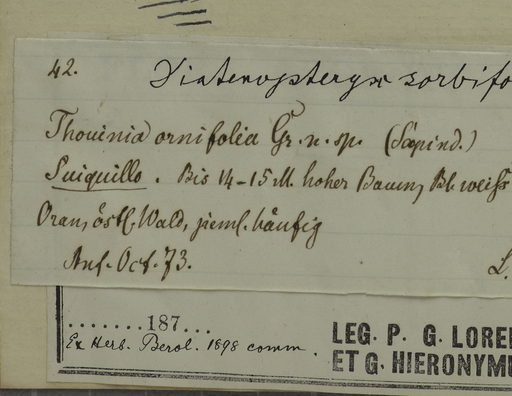 42. Diatenopteryx sorbifo
Thouinia ornifolia Gr. n. sp. (Sapind.)
Suiquillo. Bis 14-15 M. hoher Baum, Bl. weiß
Oran, östl. Wald, zieml. häufig
Anf. Oct. 73. L.
.......187...
Ex Herb. Berol. 1898 comm.
LEG. P. G. LOREN
ET G. HIERONYMU